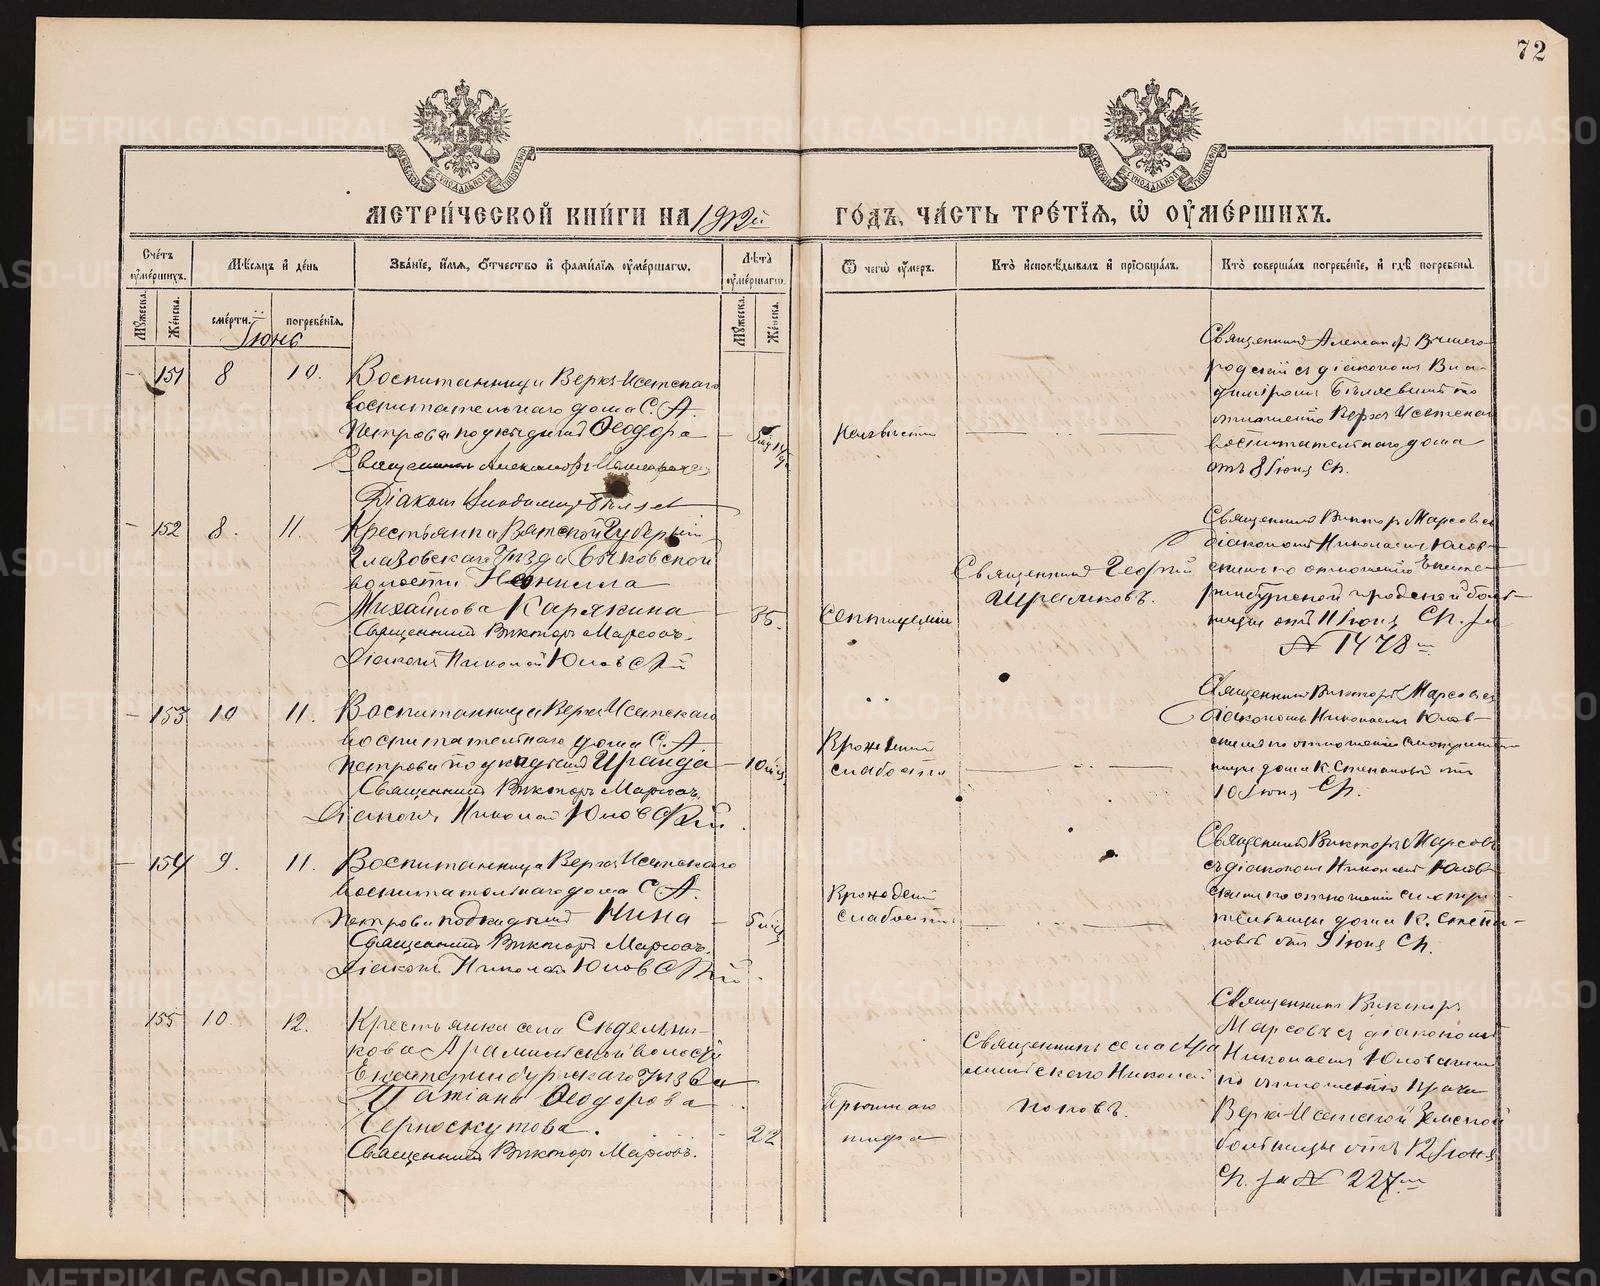 72
МОСКОВСКОЙ СѴНОДАЛЬНОЙ ТИПОГРАФІИ
МОСКОВСКОЙ СѴНОДАЛЬНОЙ ТИПОГРАФІИ
МЕТРИ́ЧЕСКОЙ КНИ́ГИ НА 1912й
ГО́ДЪ, ЧА́СТЬ ТРЕ́ТІѦ, Ѡ҆ ОУ҆МЕ́РШИХЪ.
Сче́тъ оу҆ме́ршихъ.
Мѣ́сяцъ и҆ де́нь
Зва́нїе, и҆́мя, Ѻ҆́тчество и҆ фами́лїя оу҆ме́ршагѡ.
Лѣ́та оу҆ме́ршагѡ.
Ѿ чегѡ̀ оу҆́меръ.
Кто̀ и҆сповѣ́дывалъ и҆ прїѡбща́лъ.
Кто̀ соверша́лъ погребе́нїе, и҆ гдѣ̀ погребены̀.
Мꙋ́жеска.
Же́нска.
сме́рти.
погребе́нїя.
Мꙋ́жеска.
Же́нска.
Іюнь
- 151 8 10.
Воспитанница Верхъ-Исетскаго
воспитательнаго дома С. А.
Петрова подкидышъ Ѳеодора
Священникъ Александръ
Діаконъ Владимиръ Бѣляевъ
Неизвѣстно
Священникъ Александръ Вышего-
родскій съ діакономъ Вла-
диміромъ Бѣляевымъ по
отношенію Верхъ Исетскаго
воспитательнаго дома
отъ 8 Іюня с/г.
- 152 8. 11.
Крестьянка Вятской Губерніи
Глазовскаго Уѣзда
волости Неонила
Михайлова Карякина
Священникъ Викторъ Марсовъ.
Діаконъ Николай Юновскій
35.
Септицеміи
Священникъ Георгій
Шрамковъ.
Священникъ Викторъ Марсовъ съ
діакономъ Николаемъ Юнов-
скимъ по отношенію Екате-
ринбургской городской боль-
ницы отъ 11 Іюня с/г. за
№ 1478м
- 153 10 11.
Воспитанница Верхъ Исетскаго
воспитательнаго дома С. А.
Петрова подкидышъ Ираида
Священникъ Викторъ Марсовъ,
Діаконъ Николай Юновскій.
10 мѣс.
Врожденной
слабости
Священникъ Викторъ Марсовъ съ
діакономъ Николаемъ Юнов-
скимъ по отношенію смотритель-
ницы дома К. Степановой отъ
10 Іюня с/г.
- 154 9. 11.
Воспитанница Верхъ Исетскаго
воспитательнаго дома С. А.
Петрова подкидышъ Нина
Священникъ Викторъ Марсовъ.
Діаконъ Николай Юновскій.
5 мѣс
Врожденной
слабости
Священникъ Викторъ Марсовъ
съ діакономъ Николаемъ Юнов-
скимъ по отношенію смотри-
тельницы дома К. Степа-
новой отъ 9 Іюня с/г.
155 10. 12.
Крестьянка села Сѣдельни-
кова Арамильской волости
Екатеринбургскаго уѣзда
Татіана Ѳеодорова
Черноскутова.
Священникъ Викторъ Марсовъ.
22
Брюшнаго
тифа
Священникъ села Ара
мильскаго Николай
Поповъ.
Священникъ Викторъ
Марсовъ съ діакономъ
Николаемъ Юновскимъ
по отношенію врача
Верхъ-Исетской Земской
больницы отъ 12 Іюня
с/г. за № 227м